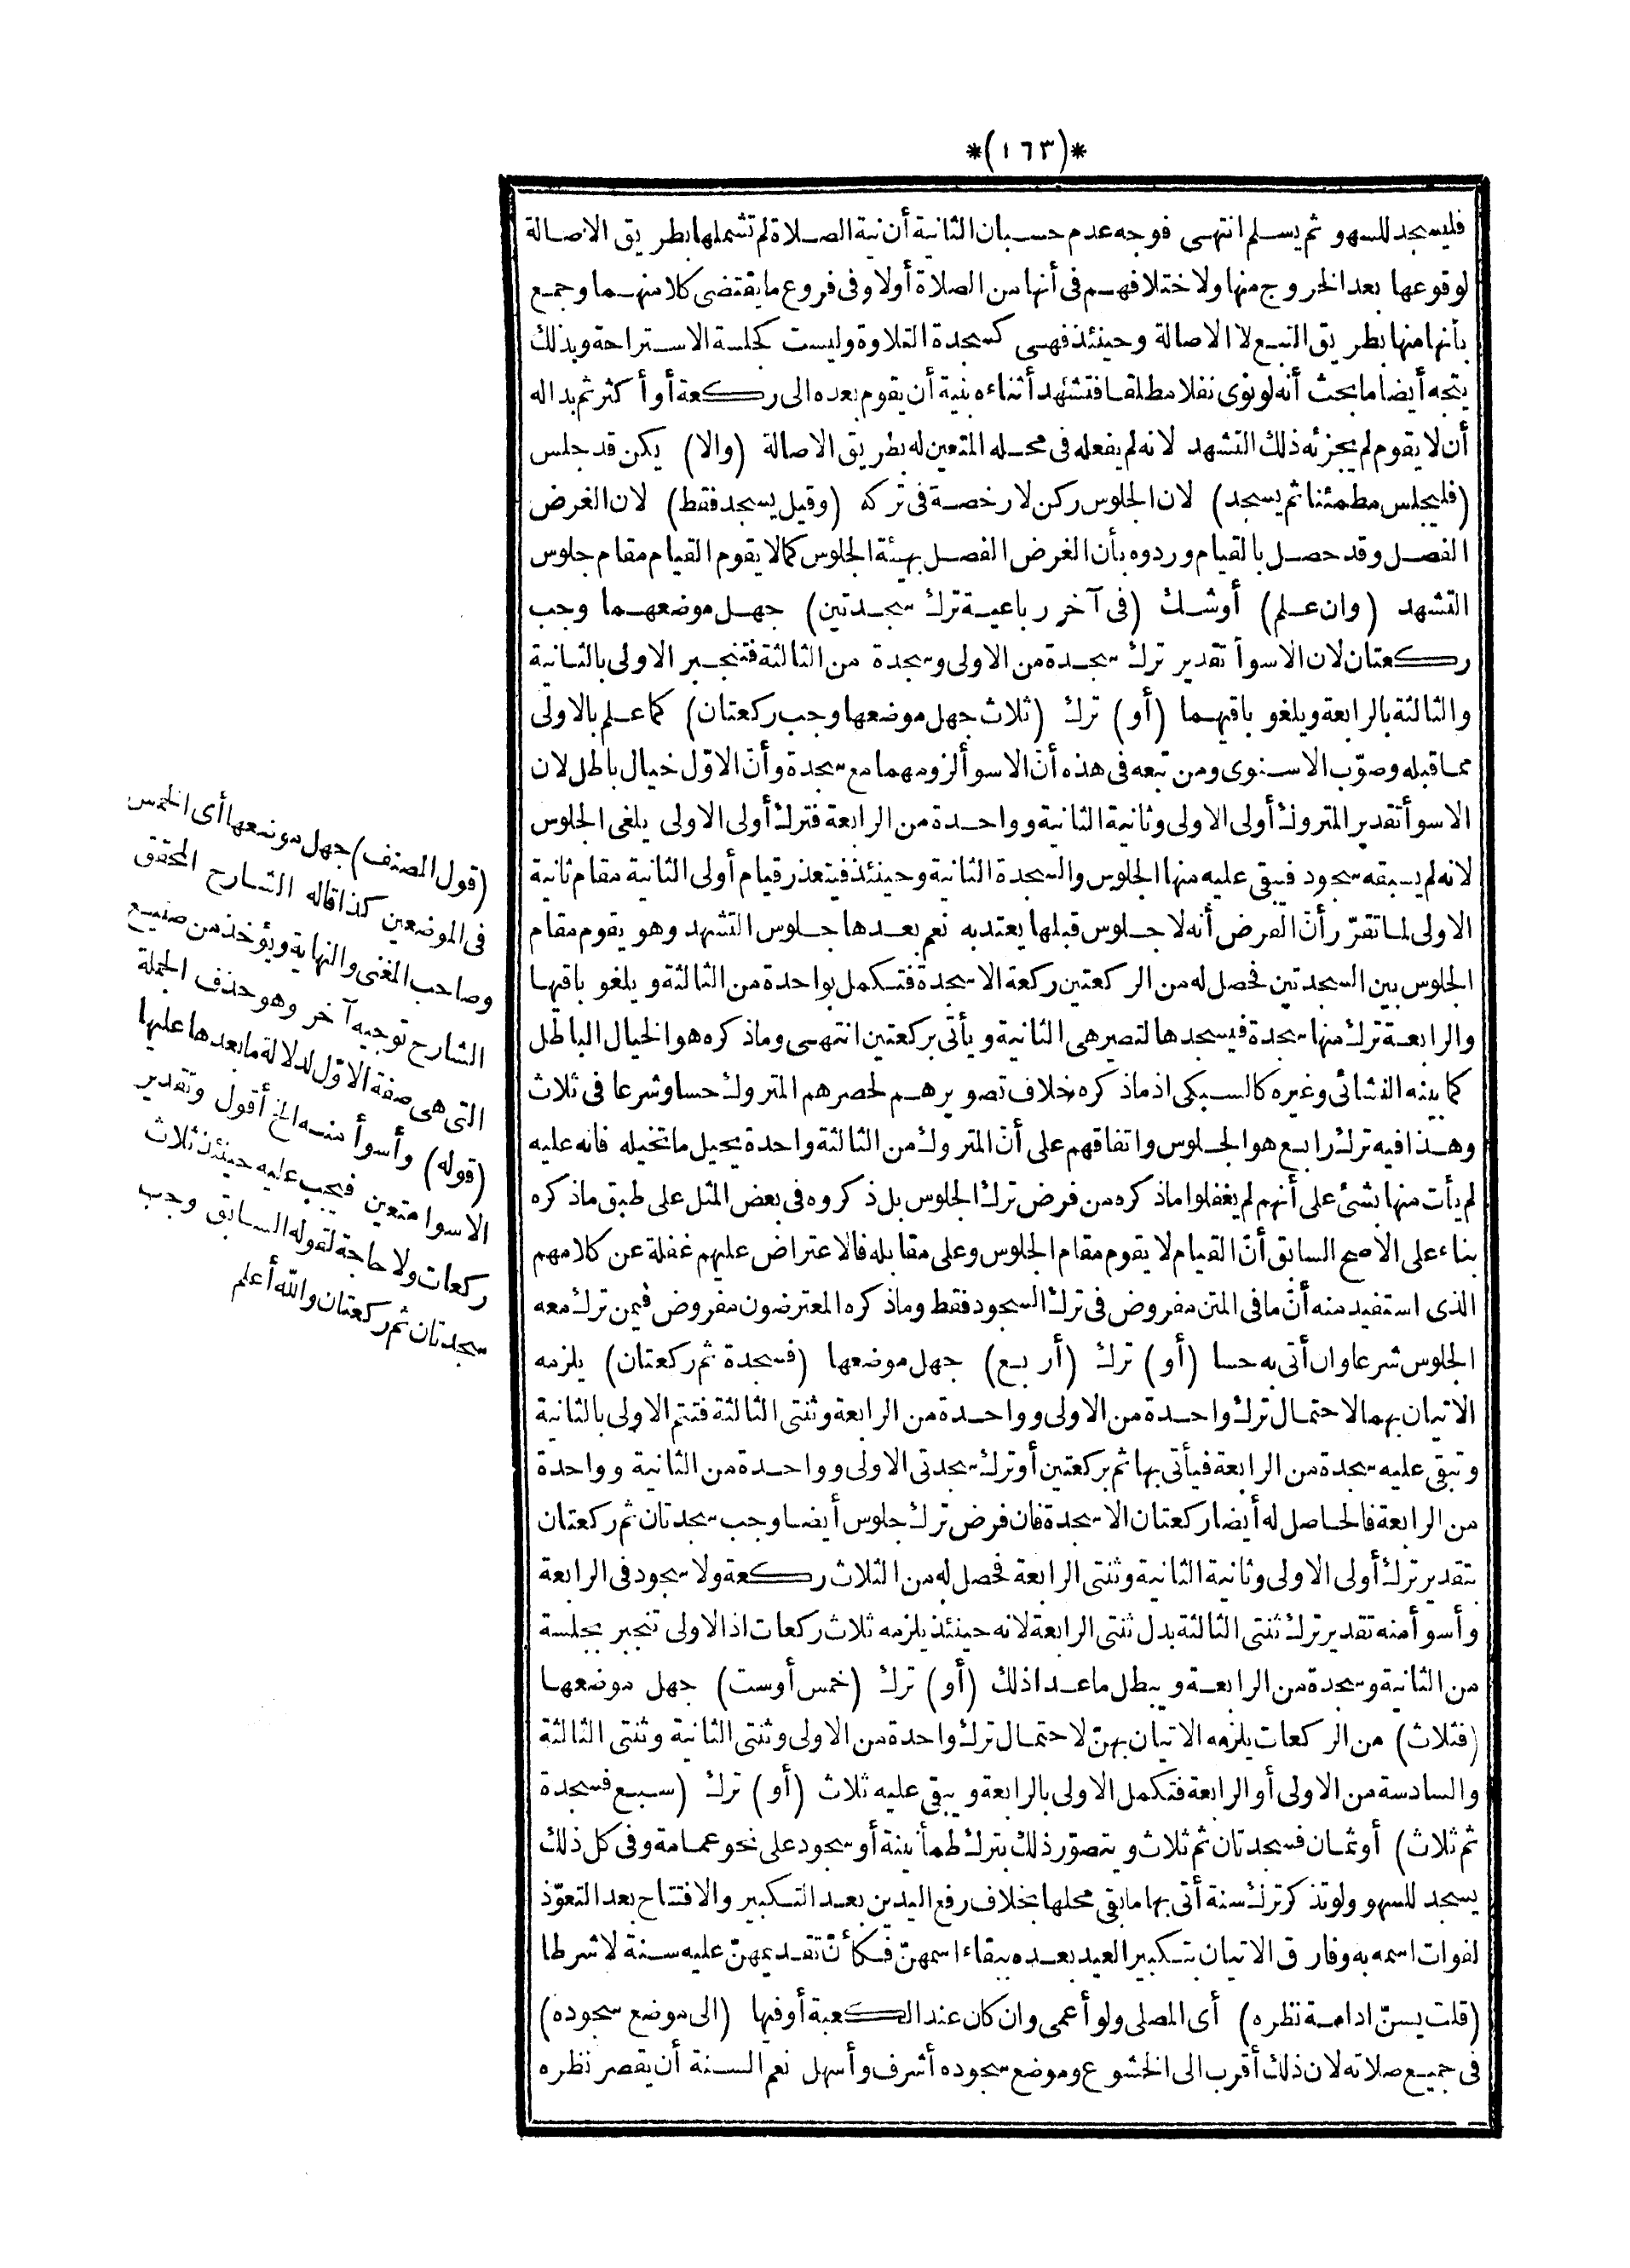 *(١٦٣)*
فليسجد للسهو ثم يسلم انتهى فوجه عدم حسبان الثانية أن نية الصلاة لم تشملها بطريق الاصالة
لوقوعها بعد الخروج منها ولاختلافهم فى أنها من الصلاة أولا وفى فروع ما يقتضى كلا منهما وجمع
بأنها منها بطريق التبع لا الاصالة وحينئذ فهى كسجدة التلاوة وليست كجلسة الاستراحة وبذلك
يتجه أيضا ما بحث أنه لو نوى نفلا مطلقا فتشهد أثناءه بنية أن يقوم بعده الى ركعة أو أكثر ثم بداله
أن لا يقوم لم يجزئه ذلك التشهد لانه لم يفعله فى محله المتعين له بطريق الاصالة (والا) يكن قد جلس
(فليجلس مطمئنا ثم يسجد) لان الجلوس ركن لا رخصة فى تركه (وقيل يسجد فقط) لان الغرض
الفصل وقد حصل بالقيام وردوه بأن الغرض الفصل بهيئة الجلوس كما لا يقوم القيام مقام جلوس
التشهد (وان علم) أو شك (فى آخر رباعية ترك سجدتين) جهل موضعهما وجب
ركعتان لان الاسوأ تقدير ترك سجدة من الاولى وسجدة من الثالثة فتنجبر الاولى بالثانية
والثالثة بالرابعة ويلغو باقيهما (أو) ترك (ثلاث جهل موضعها وجب ركعتان) كما علم بالاولى
مما قبله وصوّب الاسنوى ومن تبعه فى هذه أنّ الاسوأ لزومهما مع سجدة وأنّ الاوّل خيال باطل لان
الاسوأ تقدير المتروك أولى الاولى وثانية الثانية وواحدة من الرابعة فترك أولى الاولى يلغى الجلوس
لانه لم يسبقه سجود فيبقى عليه منها الجلوس والسجدة الثانية وحينئذ فيتعذر قيام أولى الثانية مقام ثانية
الاولى لما تقرّر أنّ الفرض أنه لا جلوس قبلها يعتدبه نعم بعدها جلوس التشهد وهو يقوم مقام
الجلوس بين السجدتين فحصل له من الركعتين ركعة الا سجدة فتكمل بواحدة من الثالثة ويلغو باقيها
والرابعة ترك منها سجدة فيسجدها لتصير هى الثانية ويأتى بركعتين انتهى وماذكره هو الخيال الباطل
كما بينه النشائى وغيره كالسبكى اذ ماذكره خلاف تصويرهم لحصرهم المتروك حسا وشرعا فى ثلاث
وهذا فيه ترك رابع هو الجلوس واتفاقهم على أنّ المتروك من الثالثة واحدة يحيل ما تخيله فانه عليه
لم يأت منها بشئ على أنهم لم يغفلوا ماذكره من فرض ترك الجلوس بل ذكروه فى بعض المثل على طبق ماذكره
بناء على الاصح السابق أنّ القيام لا يقوم مقام الجلوس وعلى مقابله فالاعتراض عليهم غفلة عن كلامهم
الذى استفيد منه أنّ ما فى المتن مفروض فى ترك السجود فقط وماذكره المعترضون مفروض فيمن ترك معه
الجلوس شرعا وان أتى به حسا (أو) ترك (أربع) جهل موضعها (فسجدة ثم ركعتان) يلزمه
الاتيان بهما لاحتمال ترك واحدة من الاولى وواحدة من الرابعة وثنتى الثالثة فتتم الاولى بالثانية
وتبقى عليه سجدة من الرابعة فيأتى بها ثم بركعتين أو ترك سجدتى الاولى وواحدة من الثانية وواحدة
من الرابعة فالحاصل له أيضا ركعتان الا سجدة فان فرض ترك جلوس أيضا وجب سجدتان ثم ركعتان
بتقدير ترك أولى الاولى وثانية الثانية وثنتى الرابعة فحصل له من الثلاث ركعة ولا سجود فى الرابعة
وأسوأ منه تقدير ترك ثنتى الثالثة بدل ثنتى الرابعة لانه حينئذ يلزمه ثلاث ركعات اذ الاولى تنجبر بجلسة
من الثانية وسجدة من الرابعة ويبطل ما عدا ذلك (أو) ترك (خمس أوست) جهل موضعها
(فثلاث) من الركعات يلزمه الاتيان بهنّ لاحتمال ترك واحدة من الاولى وثنتى الثانية وثنتى الثالثة
والسادسة من الاولى أو الرابعة فتكمل الاولى بالرابعة ويبقى عليه ثلاث (أو) ترك (سبع فسجدة
ثم ثلاث) أو ثمان فسجدتان ثم ثلاث ويتصوّر ذلك بترك طمأنينة أو سجود على نحو عمامة وفى كل ذلك
يسجد للسهو ولو تذكر ترك سنة أتى بها ما بقى محلها بخلاف رفع اليدين بعد التكبير والافتتاح بعد التعوّذ
لفوات اسمه به وفارق الاتيان بتكبير العيد بعده ببقاء اسمهنّ فكأنّ تقديمهنّ عليه سنة لا شرطا
(قلت يسنّ ادامة نظره) أى المصلى ولو أعمى وان كان عند الكعبة أو فيها (الى موضع سجوده)
فى جميع صلاته لان ذلك أقرب الى الخشوع وموضع سجوده أشرف وأسهل نعم السنة أن يقصر نظره
(قول المصنف) جهل موضعها أى الخمس
فى الموضعين كذا قاله الشارح المحقق
وصاحب المغنى والنهاية ويؤخذ من صنيع
الشارح توجيه آخر وهو حذف الجملة
التى هى صفة الاوّل لدلالة ما بعدها عليها
(قوله) وأسوأ منه الخ أقول وتقدير
الاسوا متعين فيجب عليه حينئذ ثلاث
ركعات ولا حاجة لقوله السابق وجب
سجدتان ثم ركعتان والله أعلم